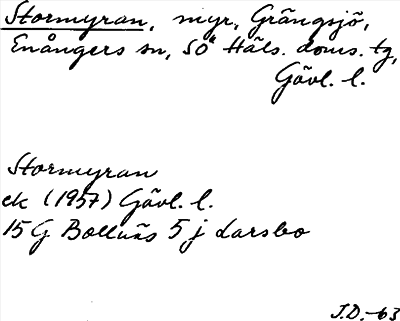 Stormyran, myr, Grängsjö,
Enångers sn, SÖ Häls. doms. tg,
Gävl. l.
Stormyran
ek (1957) Gävl. l.
15 G Bollnäs 5 j Larsbo
J.D.-63